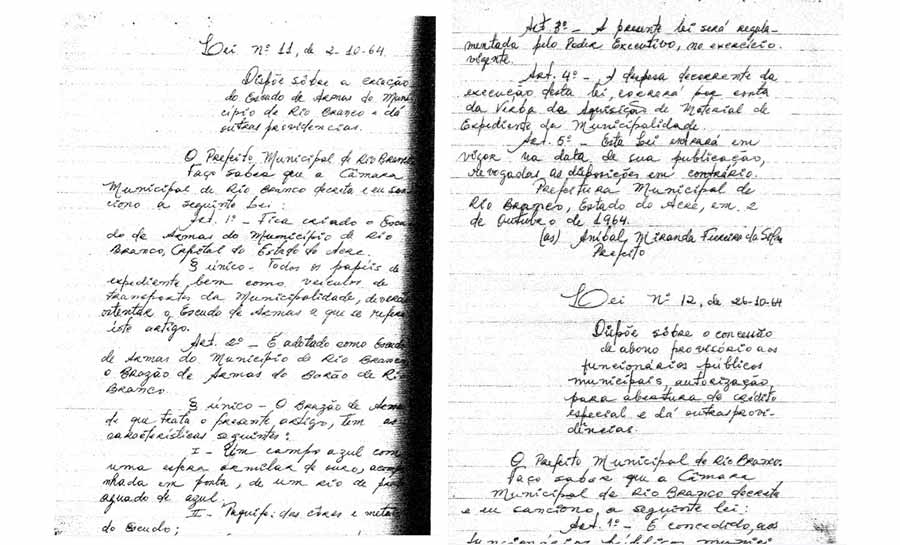 Lei Nº 11, de 2-10-64.
Dispõe sôbre a criação
do Escudo de Armas do Muni-
cípio de Rio Branco e dá
outras providencias.
O Prefeito Municipal de Rio Branco
Faço saber que a Câmara
Municipal de Rio Branco decreta e eu san-
ciono a seguinte Lei:
Art. 1º - Fica criado o Escu
do de Armas do Município de Rio
Branco, Capital do Estado do Acre.
§ único - Todos os papéis de
expediente, bem como veículos de
transportes da Municipalidade, deverão
ostentar o Escudo de Armas a que se refere
êste artigo.
Art. 2º - É adotado como Escudo
de Armas do Município de Rio Branco
o Brazão de Armas do Barão de Rio
Branco.
§ único - O Brazão de Armas
de que trata o presente artigo, tem as
características seguintes:
I - Um campo azul com
uma esfera armilar de ouro, acompa
nhada em ponta, de um rio de prata
aguado de azul.
II - Paquife: das côres e metais
do escudo;
Art. 3º - A presente lei será regula-
mentada pelo Poder Executivo, no exercício
vigente.
Art. 4º - A despesa decorrente da
execução desta lei, correrá por conta
da Verba da Aquisição de Material de
Expediente da Municipalidade.
Art. 5º - Esta Lei entrará em
vigor na data de sua publicação,
revogadas as disposições em contrário.
Prefeitura Municipal de
Rio Branco, Estado do Acre, em 2
de Outubro de 1964.
(as) Aníbal Miranda Ferreira da Silva
Prefeito
Lei Nº 12, de 26-10-64
Dispõe sôbre o concessão
de abono provisório aos
funcionários públicos
municipais, autorização,
para abertura de crédito
especial e dá outras provi-
dências.
O Prefeito Municipal de Rio Branco.
Faço saber que a Câmara
Municipal de Rio Branco decreta
e eu sanciono, a seguinte lei:
Art. 1º - É concedido, aos
funcionários públicos munici